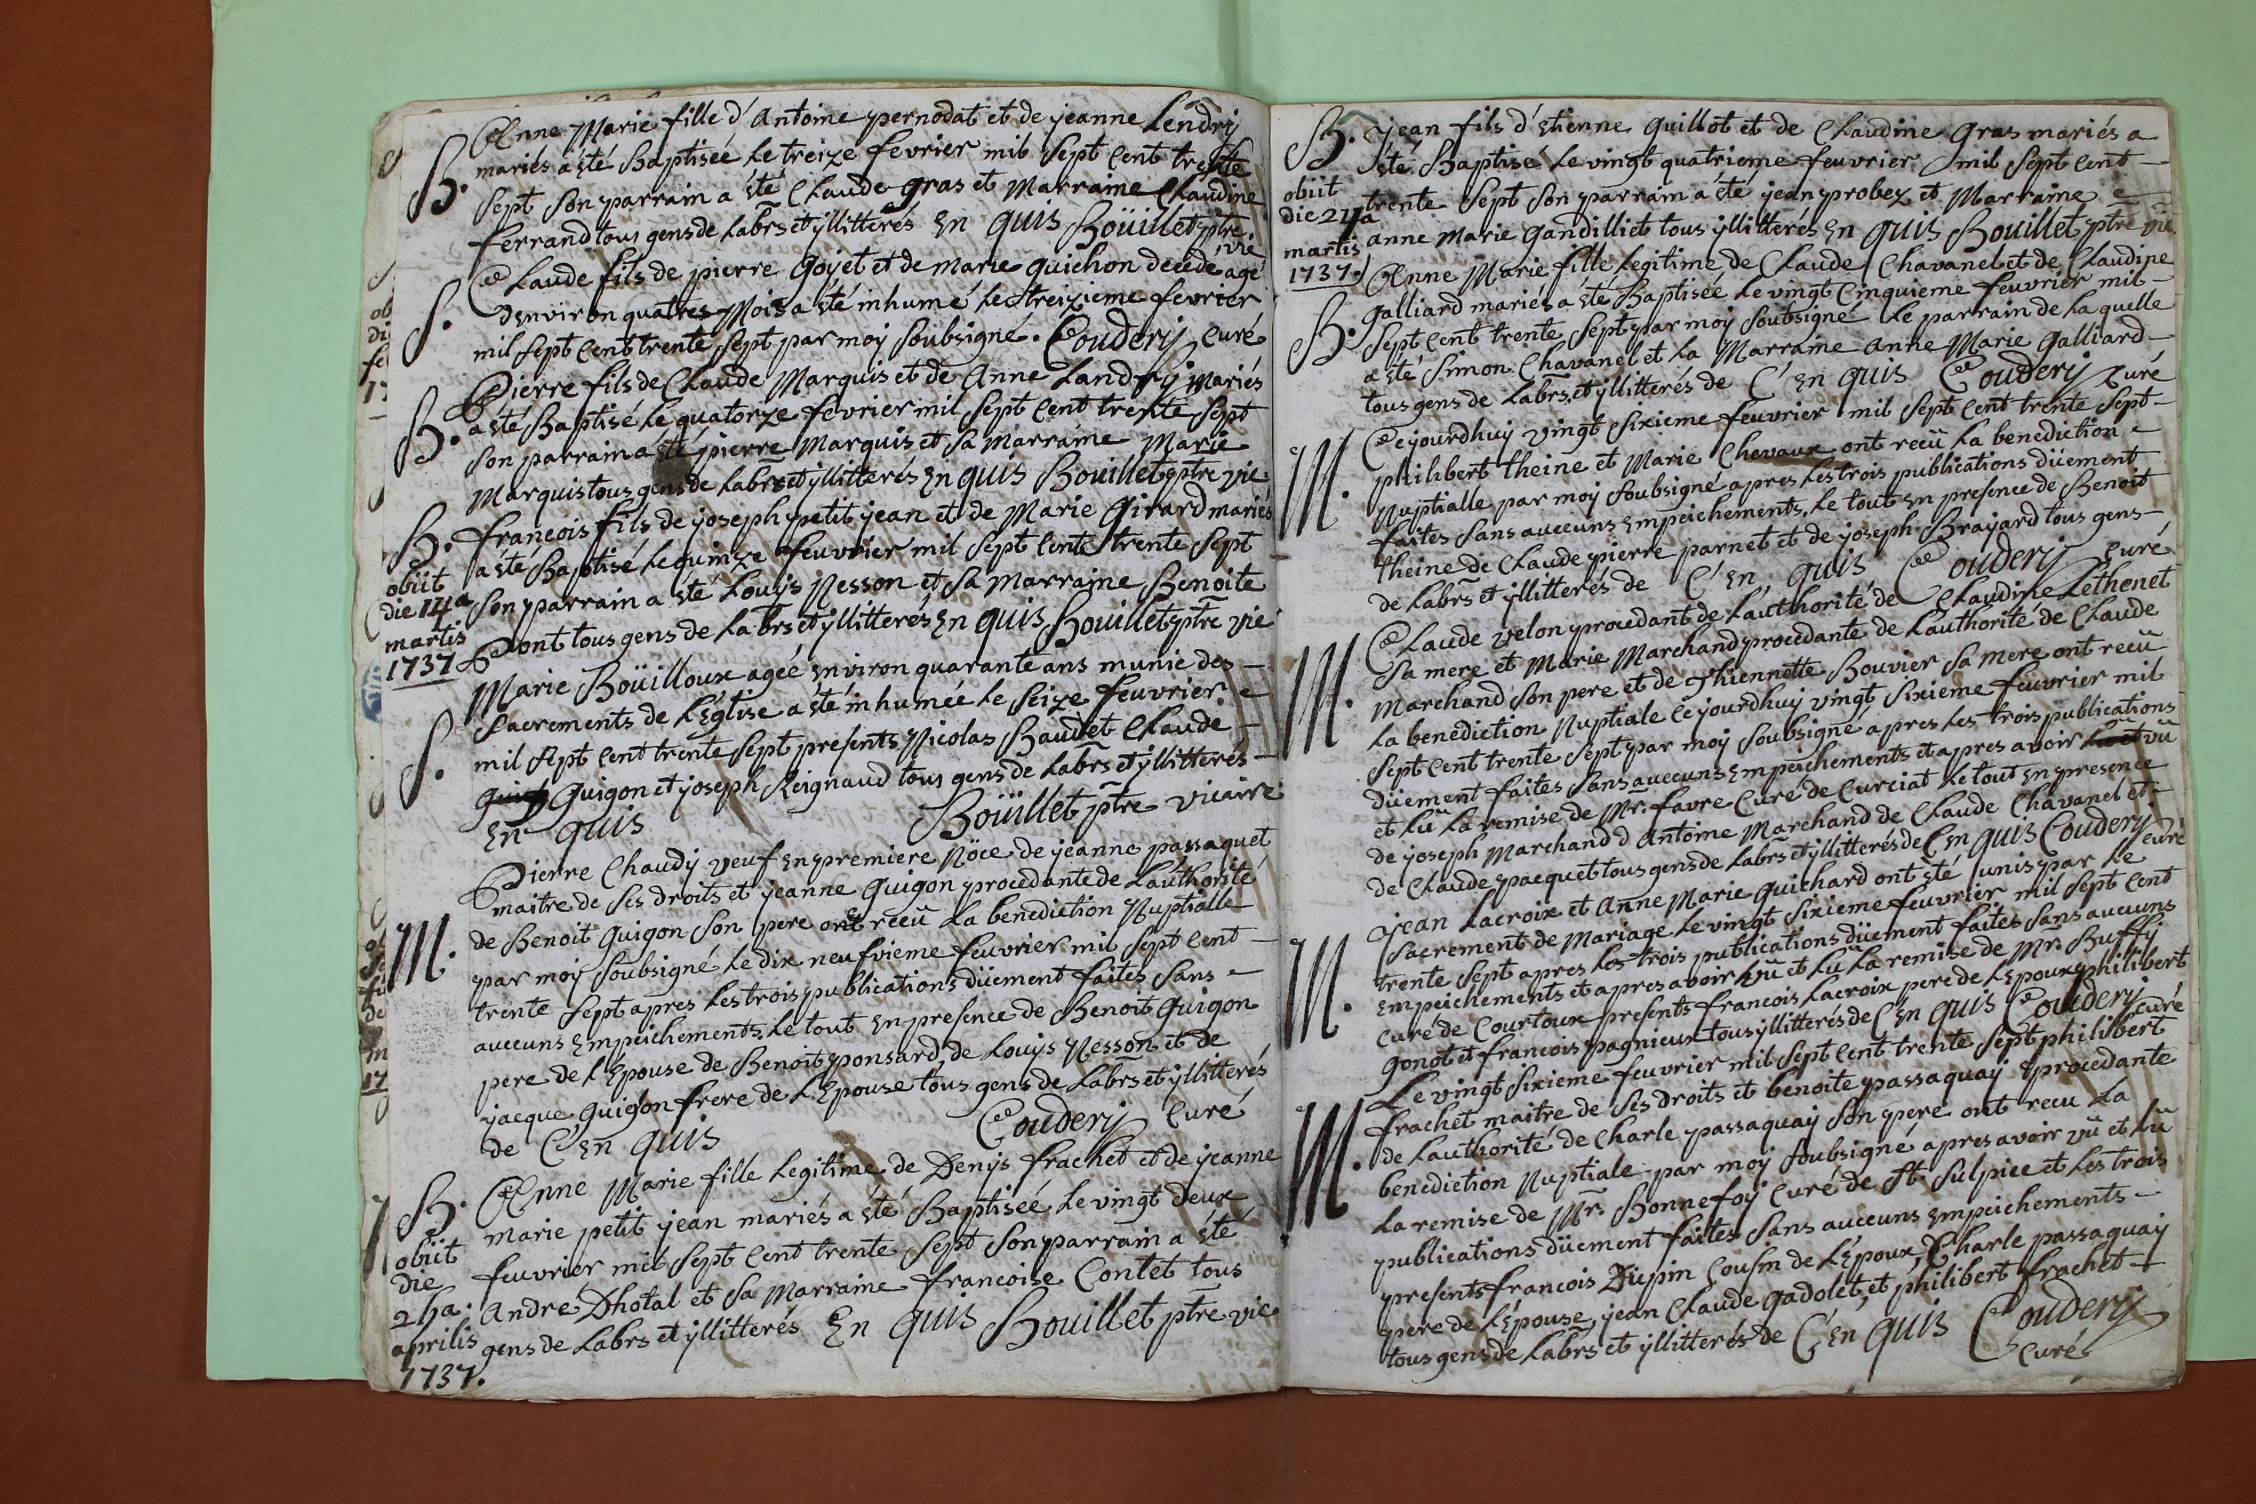 Anne Marie fille d'Antoine pernodat et de jeanne Lendrÿ
B. mariés a été Baptisée le treize fevrier mil sept cent trente
sept son parrain a été Claude gras et Marraine Claudine
ferrand tous gens de Labrs et yllitterés En quis Boüillet ptre
vic
Claude fils de pierre goÿet et de marie guichon decedé agé
S. denviron quatres Mois a été inhumé le treizieme fevrier
mil sept cent trente sept par moÿ soubsigné. Couderÿ curé
Pierre fils de Claude Marquis et de Anne Landrÿ Mariés
B. a été Baptisé le quatorze fevrier mil sept cent trente sept
son parrain a été pierre Marquis et sa marraine Marie
Marquis tous gens de Labrs et yllitterés En quis Bouillet ptre vic
B. francois fils de joseph petit jean et de Marie Girard mariés
a été Baptisé le quinze feuvrier mil sept cent trente sept
obiit
die 14a
martis
1737
son parrain a été Louÿs Nesson et sa marraine Benoite
Pont tous gens de Labrs et yllitterés En quis Bouillet ptre vic
Marie Boüilloux agée environ quarante ans munie des
sacrements de L'Eglise a été inhumée le seize feuvrier
S. mil sept cent trente sept presents Nicolas Baudet Claude
guigon et joseph Reignaud tous gens de Labrs et yllitterés
En quis Boüillet ptre vicaire
Pierre Chaudÿ veuf en premiere Nôce de jeanne passaquet
maitre de ses droits et jeanne Guigon procedante de Láuthorité
M. de Benoit Guigon son pere ont receü La benediction Nuptialle
par moÿ soubsigné le dix neufvieme feuvrier mil sept cent
trente sept apres les trois publications düement faites sans
auccuns Empeichements. le tout En presence de Benoit Guigon
pere de L'Epouse de Benoit ponsard, de Louÿs Nesson et de
jacque guigon frere de L'Epouse tous gens de Labrs et yllitterés
de C'En quis Couderÿ Curé
B. Anne Marie fille Legitime de Denÿs frachet et de jeanne
marie petit jean mariés a été Baptisée le vingt deux
obiit
die
2ha.
aprilis
1737.
feuvrier mil sept cent trente sept son parrain a été
Andre Dhotal et sa Marraine francoise Contet tous
gens de Labrs et yllitterés En quis Bouillet ptre vic
B. jean fils d'Etienne Guillot et de Claudine Gras mariés a
été Baptisé le vingt quatrieme feuvrier mil sept cent
obiit
die 24a
martis
1737.
trente sept son parrain a été jean probez et Marraine
anne Marie gandilliet tous yllitterés En quis Bouillet ptre vic.
Anne Marie fille Legitime de Claude Chavanel et de Claudine
galliard mariés a été Baptisée le vingt Cinquieme feuvrier mil
B. sept cent trente sept par moÿ soubsigné le parrain de Laquelle
a été Simon Chavanel et la Marraine Anne Marie galliard
tous gens de Labrs. et yllitterés de C'En quis Couderÿ curé
Cejourdhuÿ vingt sixieme feuvrier mil sept cent trente sept
philibert theine et Marie Chevaux ont receü La benediction
M. Nuptialle par moÿ soubsigné apres les trois publications düement
faites sans auccuns Empeichements. le tout En presence de Benoit
theine de Claude pierre parnet et de joseph Braÿard tous gens
de Labrs et yllitterés de C'En quis Couderÿ Curé
Claude velon procedant de Láuthorité de Claudine Lethenet
sa mere et Marie Marchand procedante de Láuthorité de Claude
M. Marchand son pere et de thiennette Bouvier sa mere ont receü
La benediction Nuptiale cejourdhuÿ vingt sixieme feuvrier mil
sept cent trente sept par moÿ soubsigné apres les trois publications
düement faites sans auccuns Empeichements et apres avoir vü
et Lu La remise de Mr. favre Curé de Curciat le tout En presence
de joseph Marchand d'Antoine Marchand de Claude Chavanel et
de Claude pacquet tous gens de Labrs et yllitterés de C'En quis Couderÿ curé
jean Lacroix et Anne Marie guichard ont été unis par le
sacrement de Mariage le vingt sixieme feuvrier mil sept cent
M. trente sept apres les trois publications düement faites sans auccuns
Empeichements et apres avoir vü et Lu La remise de Mr. Buffÿ
curé de Courtoux presents francois Lacroix pere de L'Epoux philibert
gonot et francois pagnieux tous yllitterés de C'En quis Couderÿ Curé
Le vingt sixieme feuvrier mil sept cent trente sept philibert
frachet maitre de ses droits et benoite passaquaÿ procedante
de Láuthorité de Charle passaquaÿ son pere ont receu La
M. benediction Nuptiale par moÿ soubsigné apres avoir vü et Lü
La remise de Mrs Bonnefoÿ Curé de St. Sulpice et les trois
publications düement faites sans auccuns Empeichements
presents francois Dupin Cousin de L'Epoux, Charle passaquaÿ
pere de L'Epouse, jean Claude gadolet, et philibert frachet
tous gens de Labrs et yllitterés de C'En quis Couderÿ
Curé